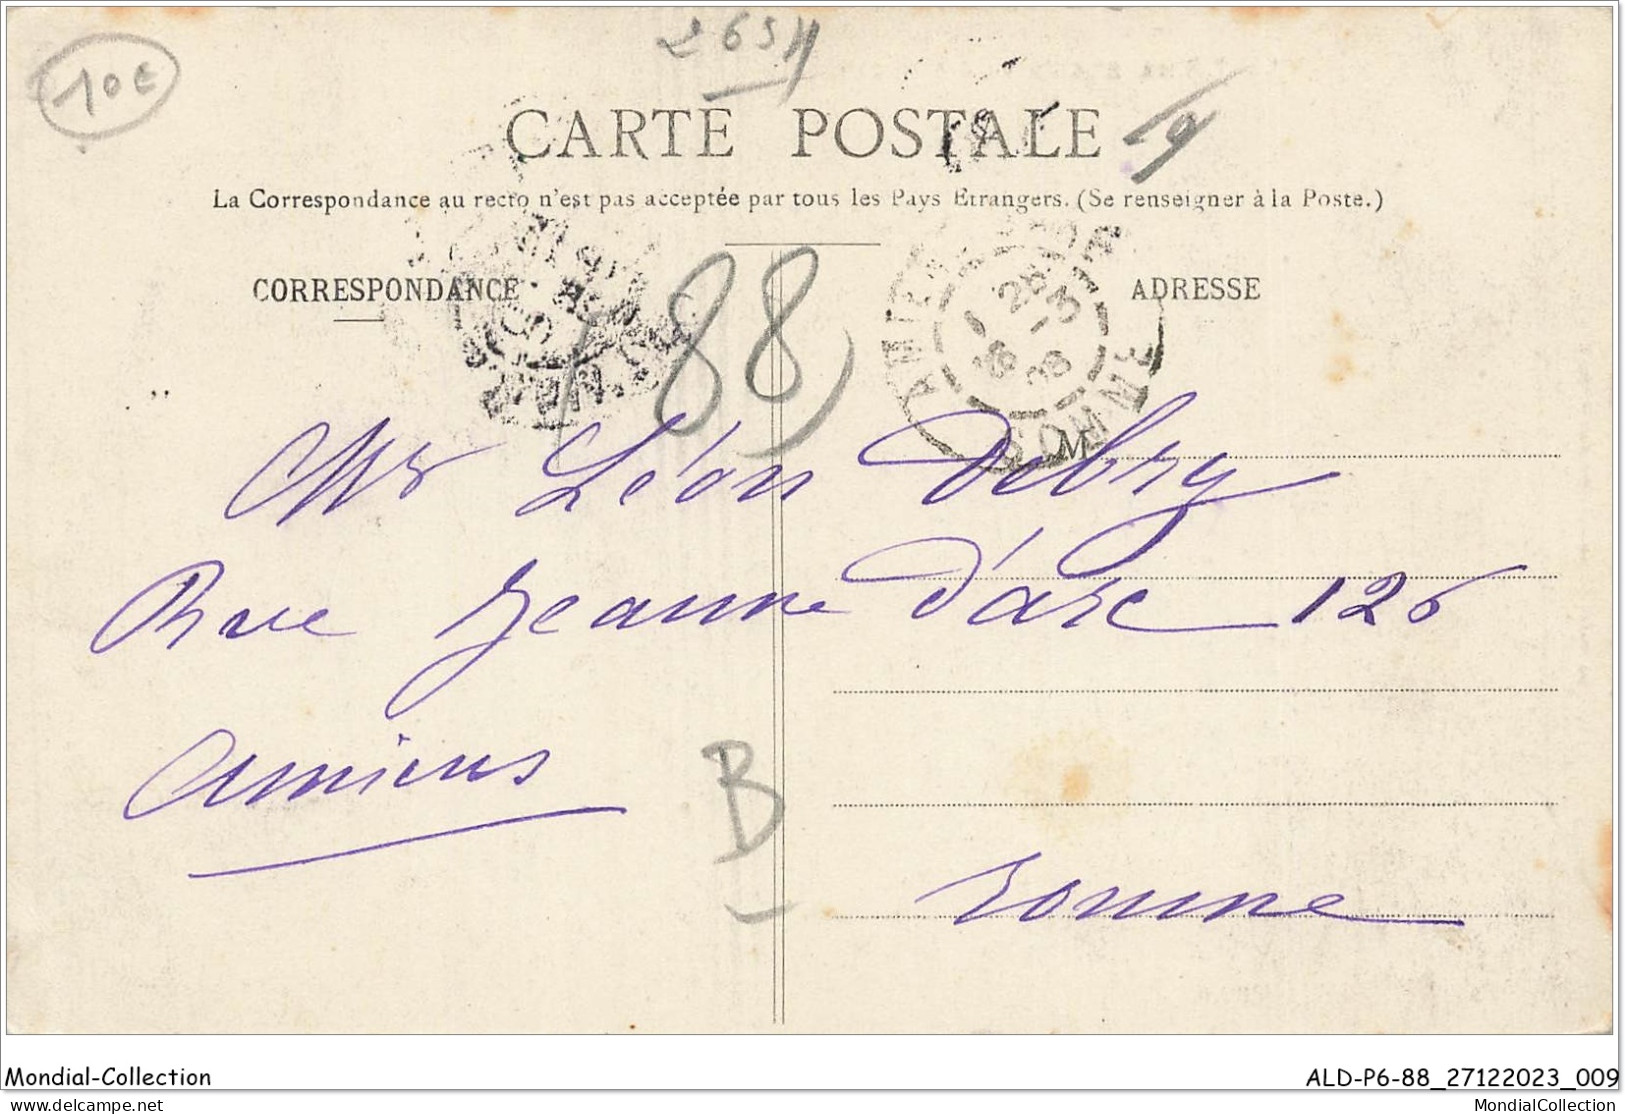 10€
CARTE POSTALE
La Correspondance au recto n'est pas acceptée par tous les Pays Etrangers. (Se renseigner à la Poste.)
CORRESPONDANCE
ADRESSE
(88)
AMIENS
SOMME
M
Mr Léon Debry
Rue Jeanne d'arc 126
Amiens
B
Somme
Mondial-Collection
ALD-P6-88_27122023_009
delcampe.net
MondialCollection